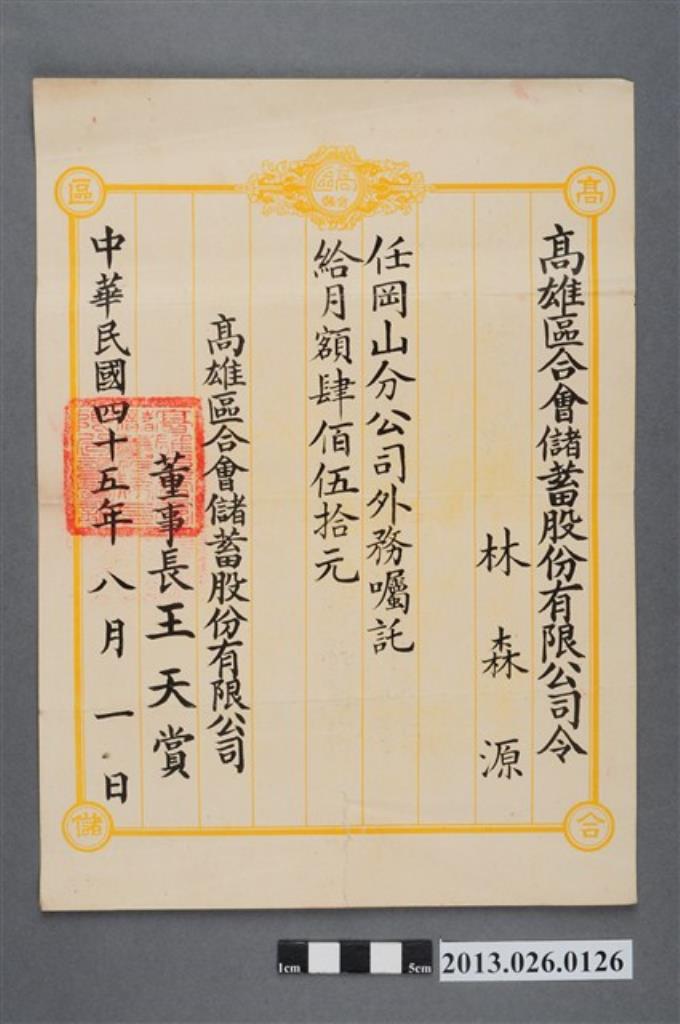 高雄區合會儲蓄股份有限公司令
林森源
任岡山分公司外務囑託
給月額肆佰伍拾元
高雄區合會儲蓄股份有限公司
董事長王天賞
中華民國四十五年八月一日
高
區
合
儲
1cm
5cm
2013.026.0126